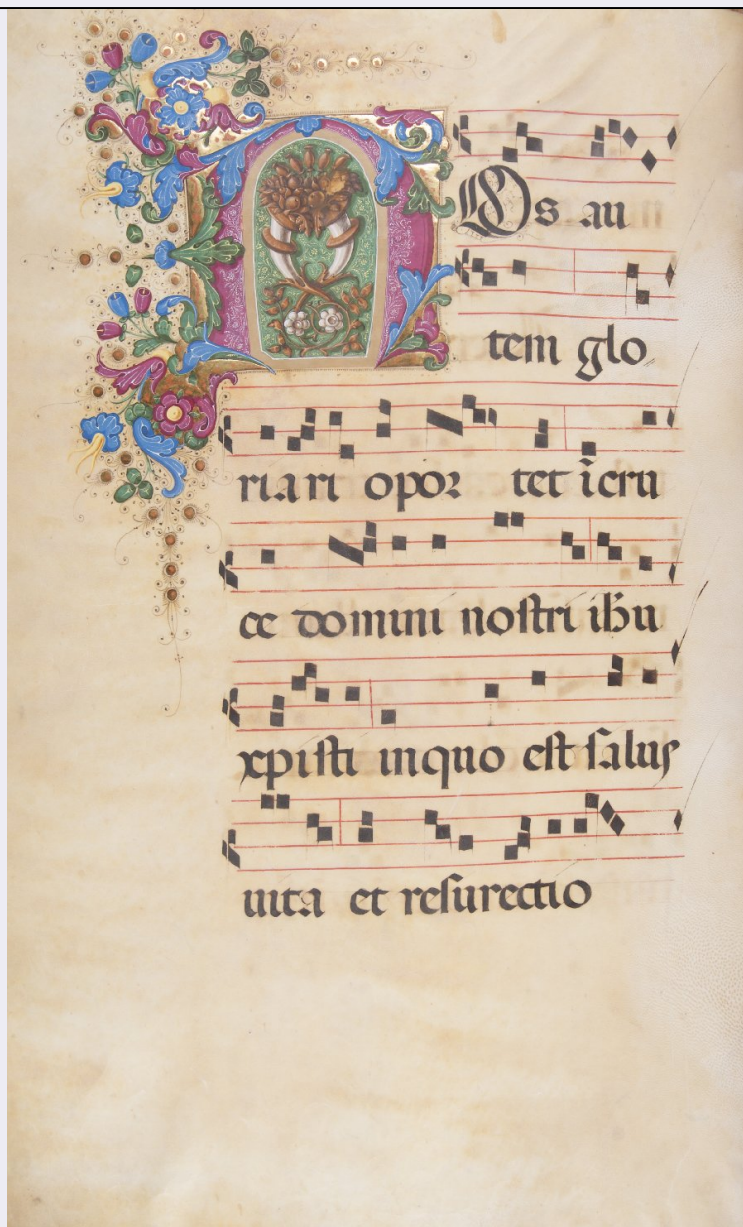 NOs au
tem glo
riari opor tet īcru
ce domini noſtri ih̄u
xpiſti inquo eſt ſalus
uita et reſurectio